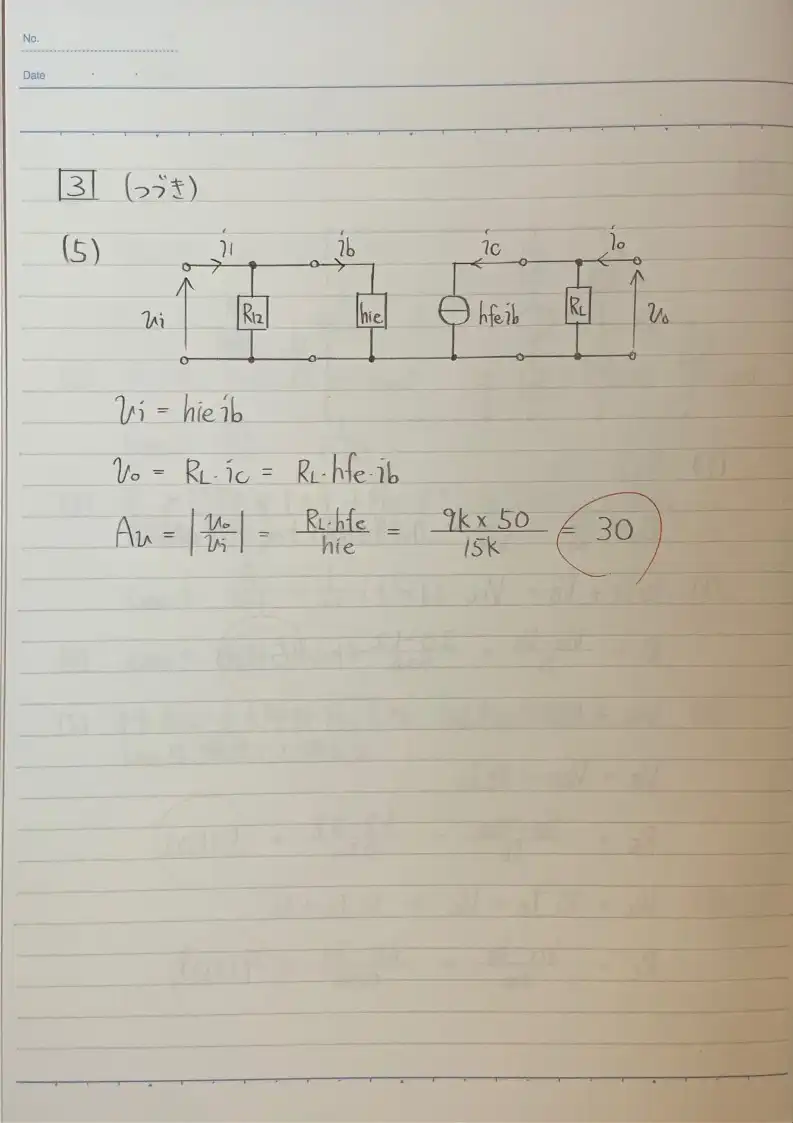 No.
Date
3 (つづき)
(5) i1 ib ic io
vi R12 hie hfeib RL vo
vi = hie ib
vo = RL・ic = RL・hfe・ib
Av = |vo/vi| = RL・hfe/hie = 9k × 50/15k = 30